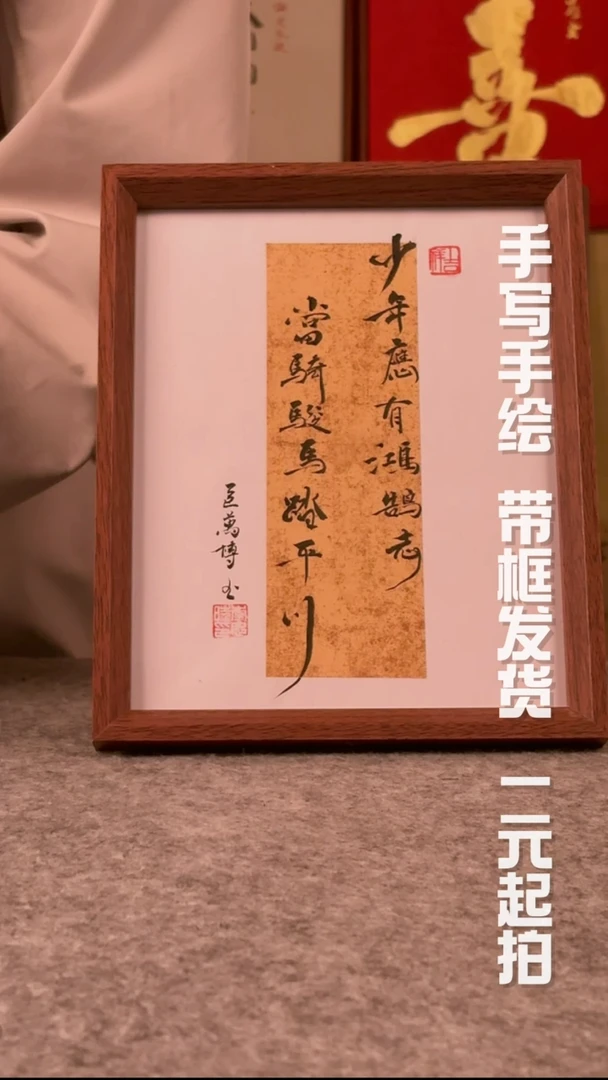 少年應有鴻鵠志
當騎駿馬踏平川
匡萬博书
手写手绘 带框发货 一元起拍